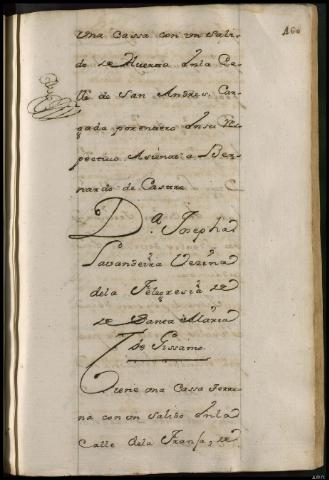 460
Una Cassa con un Sali-
do de Huerta En la Ca-
lle de San Andres, Car-
gada por entero En su Res-
pectivo Asiento a Ber-
nardo de Castro
D.ª Josepha
Lavandeira Vezina
de la Feligresia de
Santa Maria
de
Tiene una Cassa Terre-
na con un Salido En la
Calle de la Franja, de